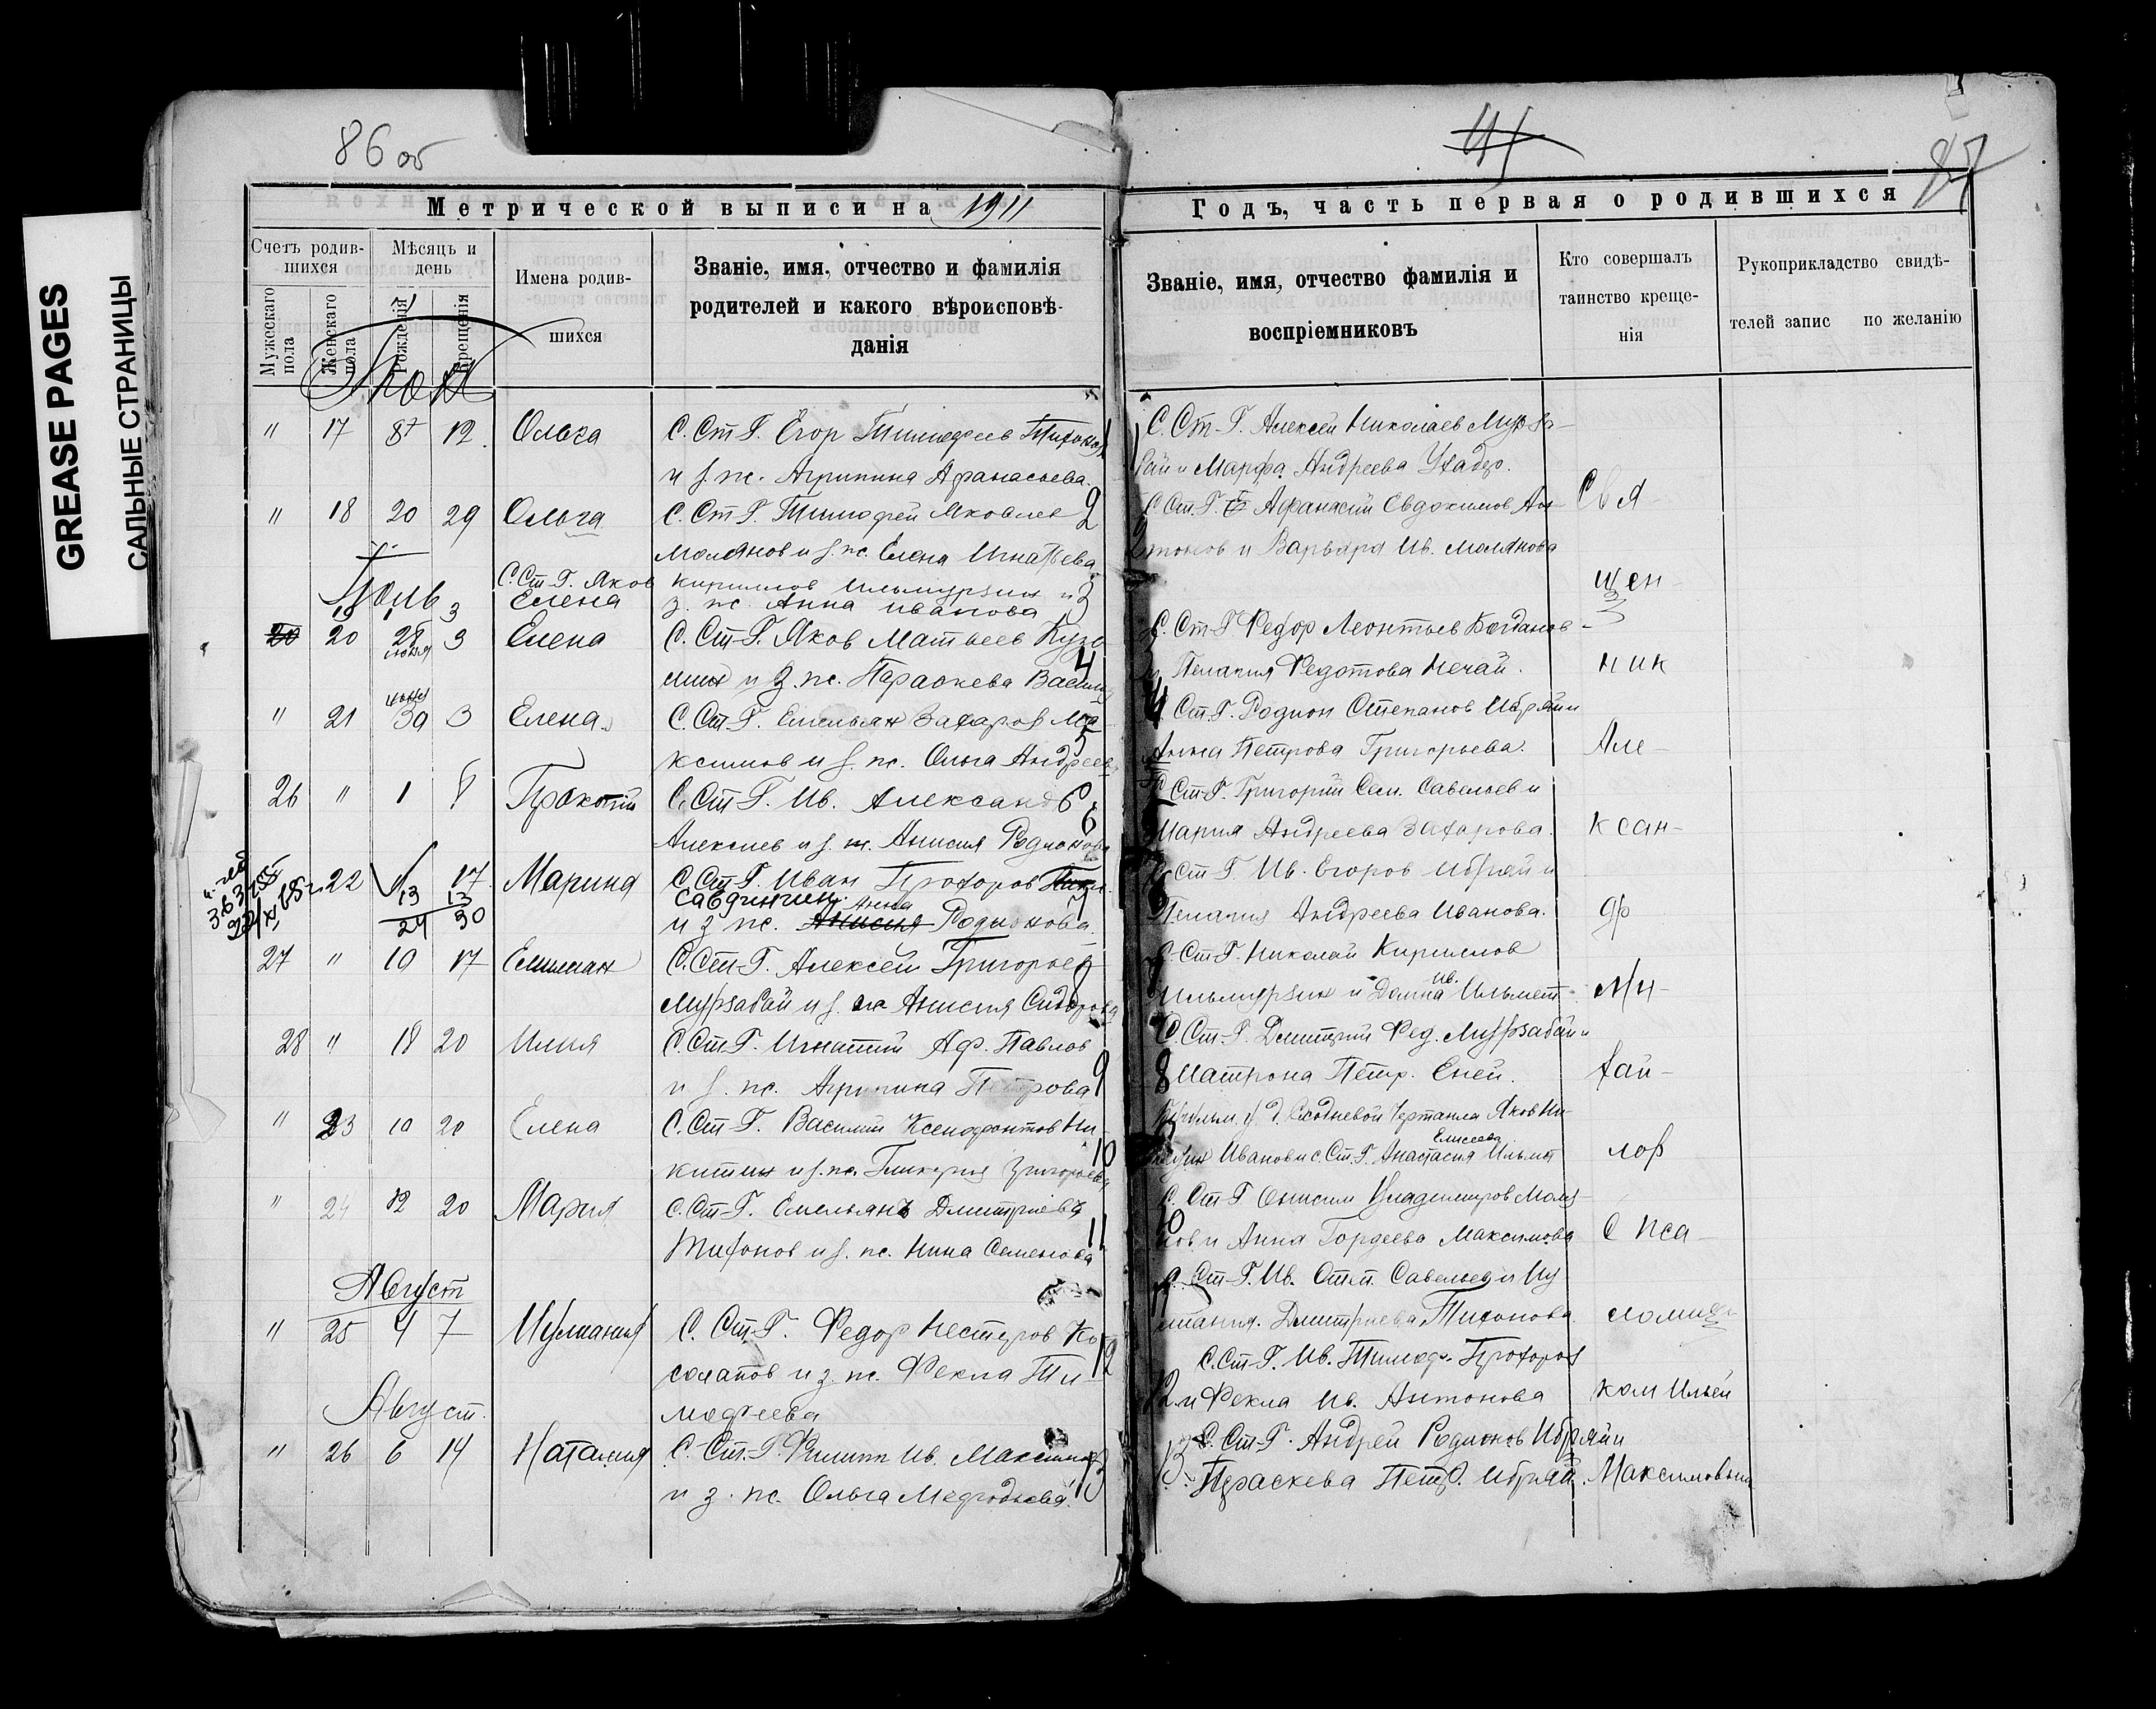 GREASE PAGES
САЛЬНЫЕ СТРАНИЦЫ
86 об
Метрической выписи на 1911
Счетъ родив-
шихся
Мѣсяць и
день
Имена родив-
шихся
Званіе, имя, отчество и фамилія
родителей и какого вѣроисповѣ-
данія
Мужескаго пола
Женскаго пола
Рожденія
Крещенія
" 17 8 12 Ольга С. Ст-Г. Егор Тимофеев Тихонов
и з. ж. Агрипина Афанасьева.
" 18 20 29 Ольга С. Ст-Г. Тимофей Яковлев 2
Молянов и з. ж. Елена Игнатьева
С. Ст-Г. Яков Кириллов Ильмурзин и 3
Июль
19 1 3 Елена з. ж. Анна Иванова
20 20 28 июня 3 Елена С. Ст-Г. Яков Матвеев Кузь
мин и з. ж. Параскева Васил 4
" 21 30 июня 3 Елена С. Ст-Г. Емельян Захаров Ма
ксимов и з. ж. Ольга Андреев 5
26 " 1 8 Прокопий С. Ст-Г. Ив. Александ
Алексиев и з. ж. Анисия Родионова 6
22 17 Марина С. Ст-Г. Иван Прохоров
13 13 Савдинчин
24 30 и з. ж. Анисия Анна Родионова. 7
27 " 10 17 Емилиан С. Ст-Г. Алексей Григорьев
Мурзабай и з. ж. Анисия Сидорова 8
28 " 18 20 Илия С. Ст-Г. Игнатий Аф. Павлов
и з. ж. Агрипина Петрова 9
" 23 10 20 Елена С. Ст-Г. Василий Ксенофонтов Ни-
китин и з. ж. Гликерия Григорьева 10
" 24 12 20 Мария С. Ст-Г. Емельянъ Дмитриевъ
Тихонов и з. ж. Нина Семенова 11
Август
" 25 4 7 Иулиания С. Ст-Г. Федор Нестеров Ко-
солапов и з. ж. Фекла Ти- 12
мофеева
Август.
" 26 6 14 Наталия С. Ст-Г. Филипп Ив. Максимов
и з. ж. Ольга Мефодьева. 13
87
Годъ, часть первая о родившихся
Званіе, имя, отчество фамилія и
воспріемниковъ
Кто совершалъ
таинство креще-
нія
Рукоприкладство свидѣ-
телей запис по желанію
С. Ст-Г. Алексей Николаев Мурза-
бай и Марфа Андреева Ухадер.
С. Ст. Г. Афанасий Евдокимов Ан- Свя-
тонов и Варвара Ив. Молянова
щен-
С. Ст-Г. Федор Леонтьев Богданов
и Пелагия Федотова Нечай. ник
С. Ст. Г. Родион Степанов Ибряй и
Анна Петрова Григорьева. Але-
С. Ст-Г. Григорий Сем. Савельев и
Мария Андреева Захарова. ксан-
С. Ст-Г. Ив. Егоров Ибряй и
Пелагия Андреева Иванова. др
С. Ст-Г. Николай Кириллов
Ильмурзин и Домна Ив. Ильмет Ми-
С. Ст-Г. Дмитрий Фед. Мурзабай и
8 Матрона Петр. Еней. хай-
Иванов и с. Ст. Г. Анастасия Елисеева Ильмет лов
С. Ст-Г. Онисим Владимиров Моля-
нов и Анна Гордеева Максимова С Пса-
С. Ст-Г. Ив. Степ. Савельев и Иу-
лиания Дмитриева Тихонова. ломщи-
С. Ст-Г. Ив. Тимоф. Прохоров
12 и Фекла Ив. Антонова ком Ильей
13 С. Ст-Г. Андрей Родионов Ибряй и
Параскева Петр. Ибряй. Максимовым